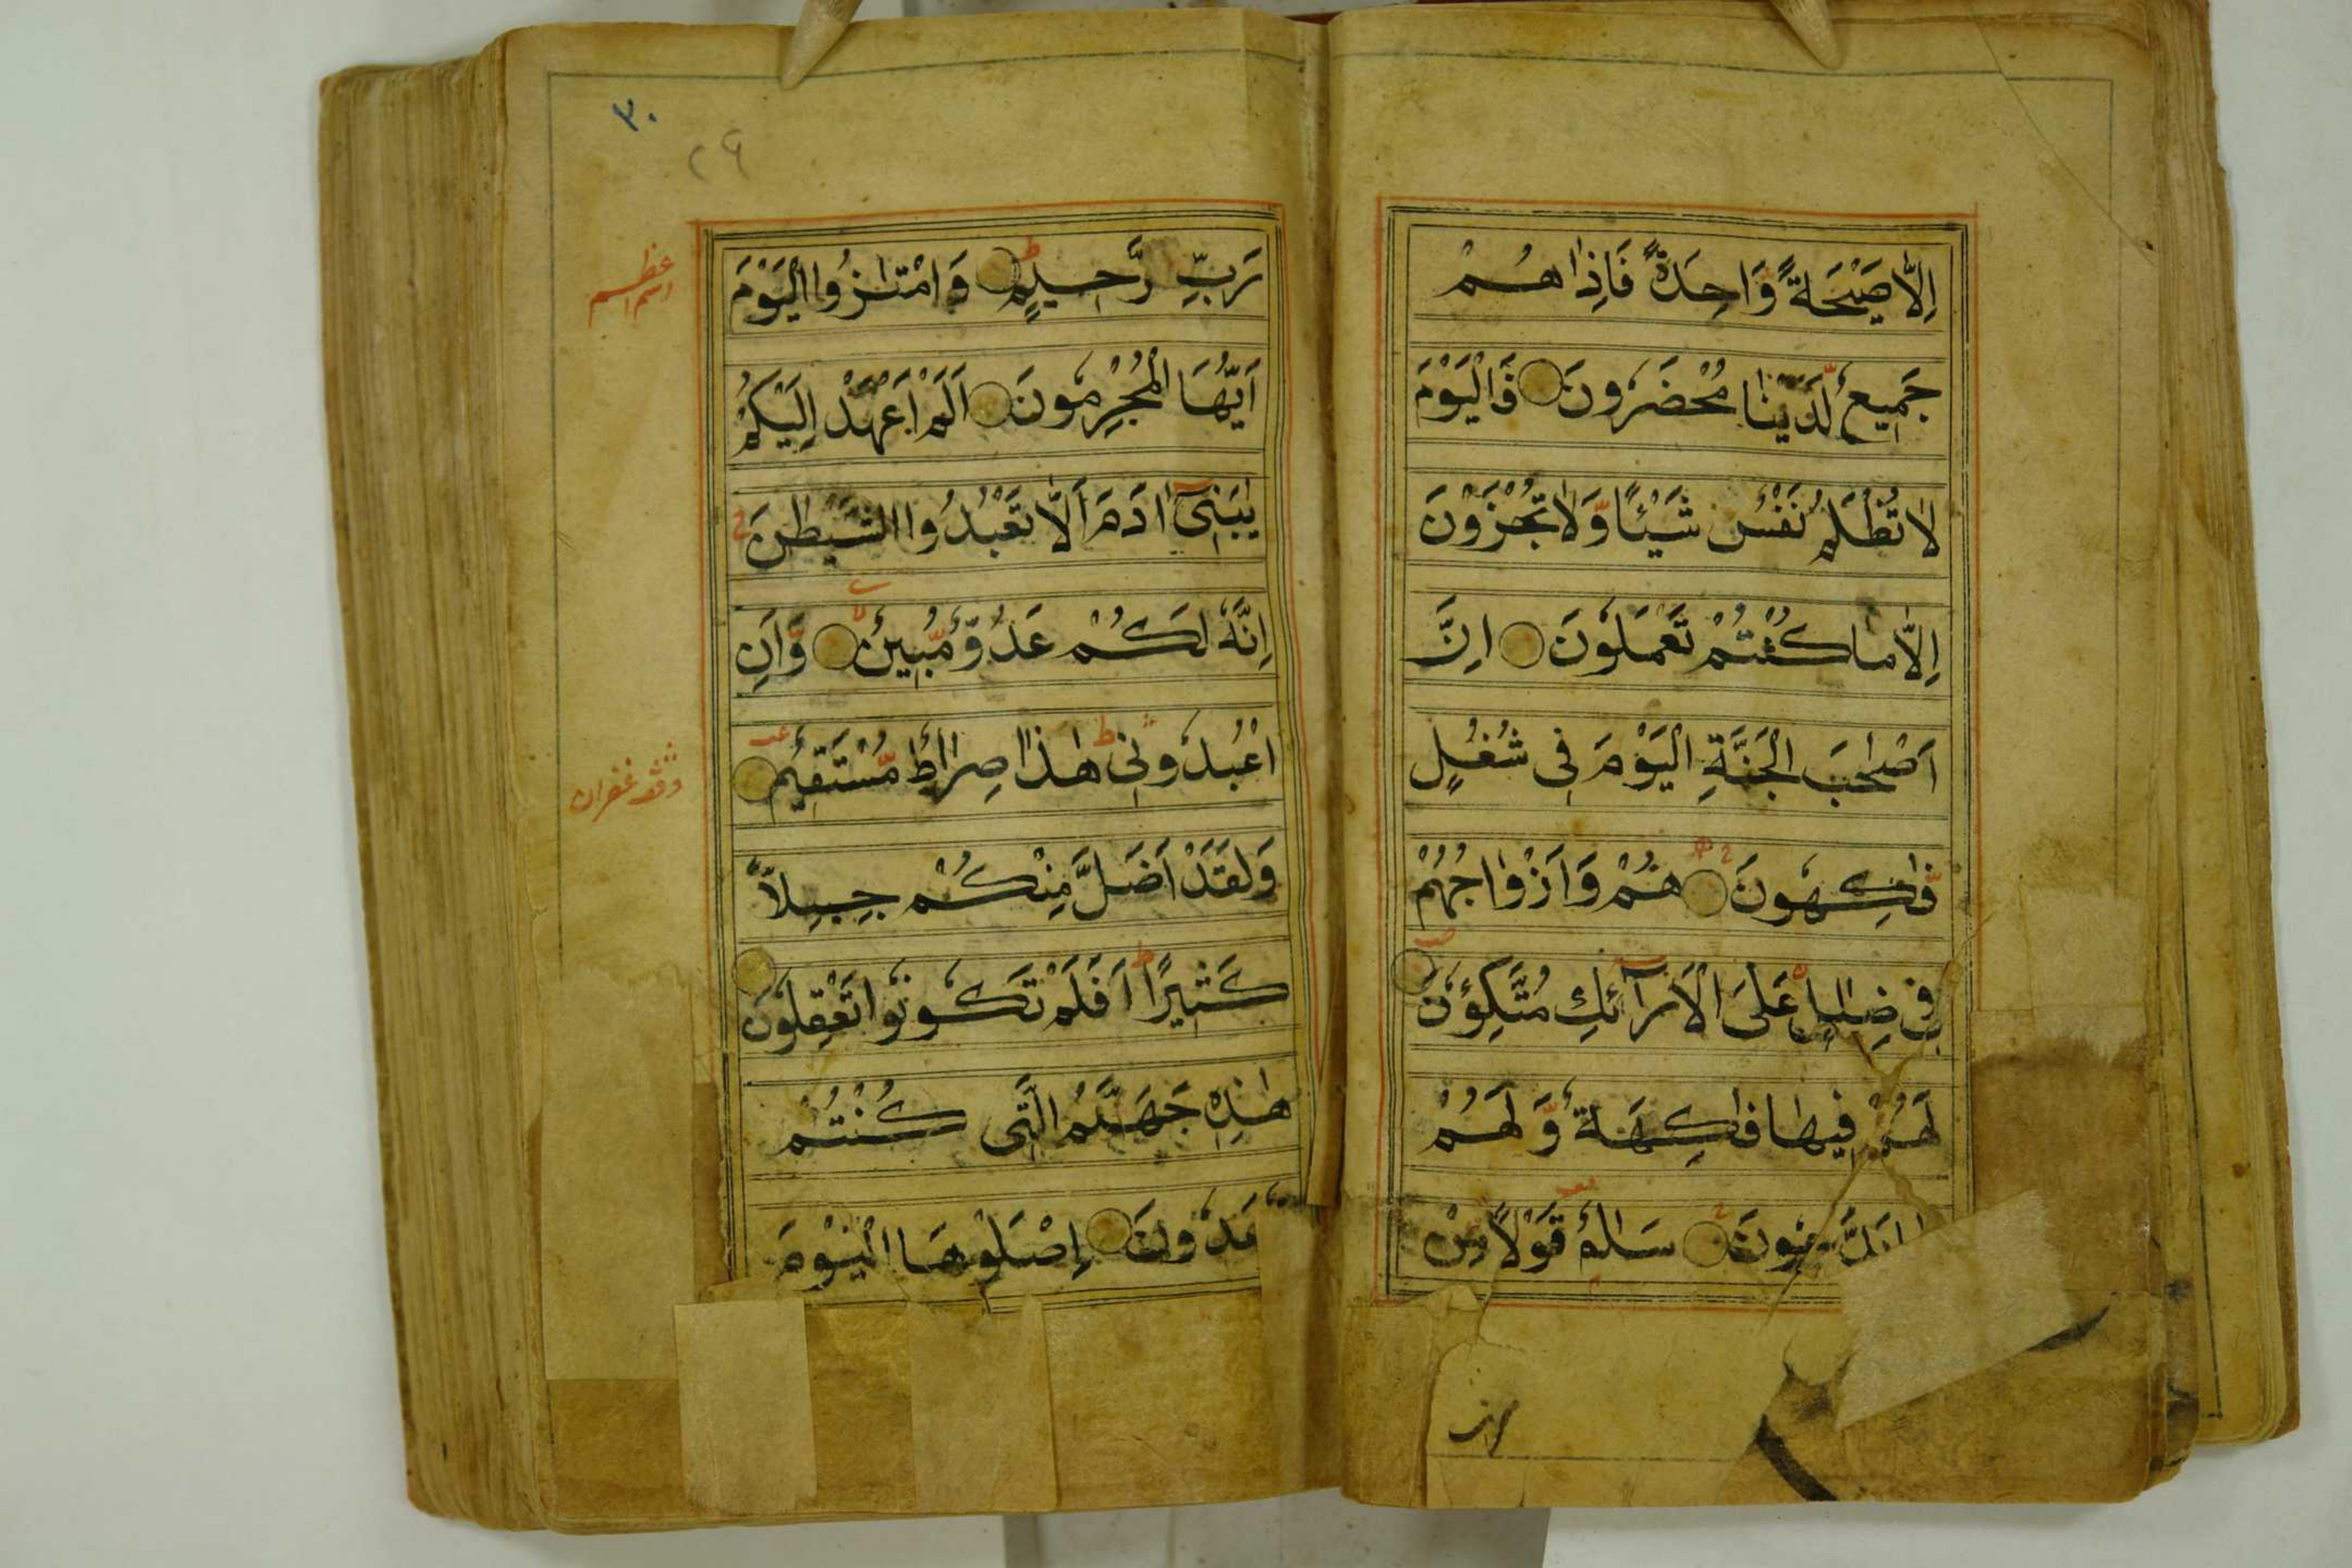 اِلَّا صَيْحَةً وَّاحِدَةً فَاِذَا هُمْ
جَمِيعٌ لَّدَيْنَا مُحْضَرُونَ فَالْيَوْمَ
لَا تُظْلَمُ نَفْسٌ شَيْئًا وَّلَا تُجْزَوْنَ
اِلَّا مَا كُنْتُمْ تَعْمَلُونَ اِنَّ
اَصْحٰبَ الْجَنَّةِ الْيَوْمَ فِى شُغُلٍ
فٰكِهُونَ هُمْ وَاَزْوَاجُهُمْ
فِى ظِلٰلٍ عَلَى الْاَرَآئِكِ مُتَّكِؤُنَ
لَهُمْ فِيهَا فَاكِهَةٌ وَّلَهُمْ
سَلٰمٌ قَوْلًا مِّنْ
٣٠
٢٩
رَبٍّ رَّحِيمٍ وَامْتَازُوا الْيَوْمَ
اَيُّهَا الْمُجْرِمُونَ اَلَمْ اَعْهَدْ اِلَيْكُمْ
يٰبَنِىٓ اٰدَمَ اَلَّا تَعْبُدُوا الشَّيْطٰنَ
اِنَّهٗ لَكُمْ عَدُوٌّ مُّبِينٌ وَّاَنِ
اعْبُدُونِى هٰذَا صِرَاطٌ مُّسْتَقِيمٌ
وَلَقَدْ اَضَلَّ مِنْكُمْ جِبِلًّا
كَثِيرًا اَفَلَمْ تَكُونُوا تَعْقِلُونَ
هٰذِهٖ جَهَنَّمُ الَّتِى كُنْتُمْ
اِصْلَوْهَا الْيَوْمَ
اسم اعظم
وقف غفران